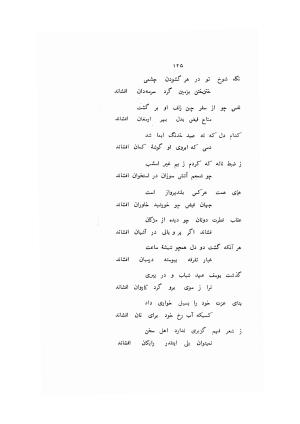 ۱۲۵
نگاه شوخ تو در هر گشودن چشمی
بزمین گرد سرمه‌دان افشاند
نفس چو از سفر چین زلف او بر گشت
متاع فیض بدل بهر ارمغان افشاند
کدام دل که نه صید خدنگ ایما شد
دمی که ابروی او گوشهٔ کمان افشاند
ز ضبط ناله که کردم ز بیم غیر امشب
چو شمعم آتش سوزان در استخوان افشاند
همت هرکس بلندپرواز است
جهان فیض چو خورشید خاوران افشاند
عقاب فطرت دونان چو دیده از مژگان
فشاند اگر پر و بالی در آشیان افشاند
هر آنکه گشت دو دل همچو شیشهٔ ساعت
غبار تفرقه پیوسته درمیان افشاند
گذشت یوسف عهد شباب و در پیری
ترا ز سوی برو گرد کاروان افشاند
بنای عزت خود را بسیل خواری داد
کسیکه آب رخ خود برای نان افشاند
ز شعر فهم گزیری ندارد اهل سخن
نمیتوان اینقدر رایگان افشاند